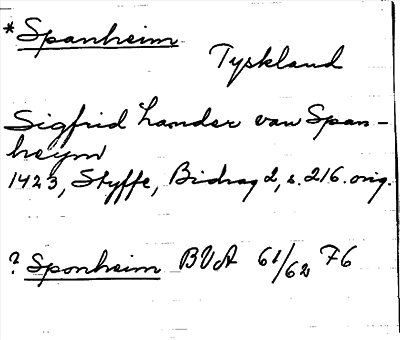 *Spanheim
Tyskland
Sigfrid Lander van Span-
heym
1423, Styffe, Bidrag 2, s. 216. orig.
? Sponheim BVA 61/62 F6